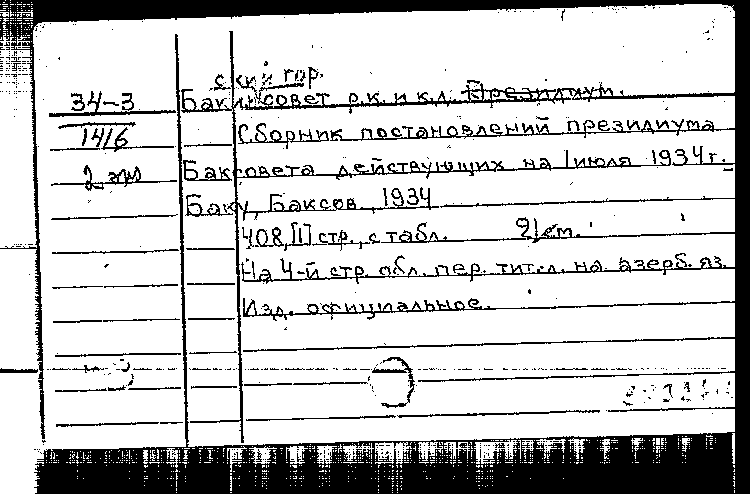 ский гор.
34-3 Баксовет р.к. и к.д. Президиум.
1416 Сборник постановлений президиума
2 экз Баксовета действующих на 1 июля 1934 г.
Баку, Баксов, 1934
408, [1] стр., с табл. 21 см.
На 4-й стр. обл. пер. тит.л. на азерб. яз.
Изд. официальное.